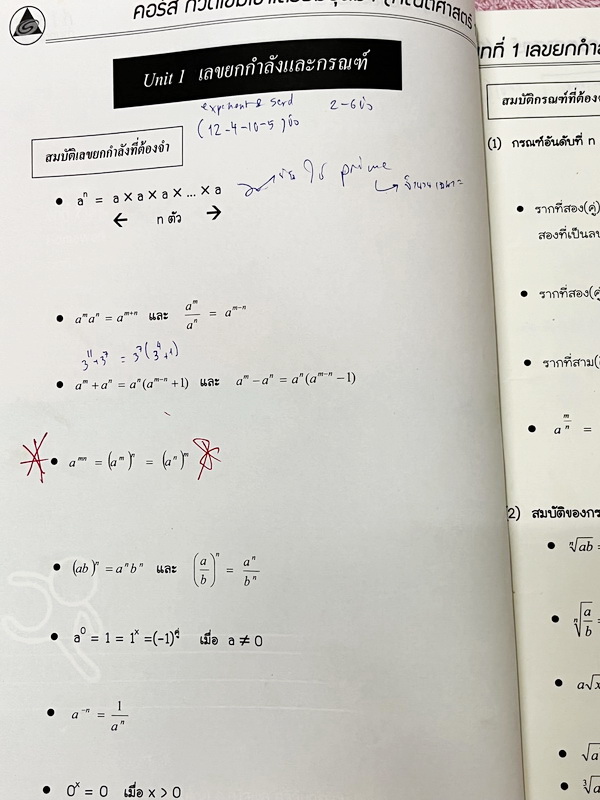 คอร์ส
Unit 1 เลขยกกำลังและกรณฑ์
2-6ข้อ
(12-4-10-5)ข้อ
สมบัติเลขยกกำลังที่ต้องจำ
• aⁿ = a x a x a x ... x a
← n ตัว →
ใช้ prime
• aᵐaⁿ = aᵐ⁺ⁿ และ aᵐ/aⁿ = aᵐ⁻ⁿ
3¹¹+3⁷ = 3⁷(3⁴+1)
• aᵐ + aⁿ = aⁿ(aᵐ⁻ⁿ + 1) และ aᵐ − aⁿ = aⁿ(aᵐ⁻ⁿ − 1)
• aᵐⁿ = (aᵐ)ⁿ = (aⁿ)ᵐ
• (ab)ⁿ = aⁿbⁿ และ (a/b)ⁿ = aⁿ/bⁿ
• a⁰ = 1 = 1ˣ = (-1)^คู่ เมื่อ a ≠ 0
• a⁻ⁿ = 1/aⁿ
• 0ˣ = 0 เมื่อ x > 0
ที่ 1 เลขยกกำ
สมบัติกรณฑ์ที่ต้อง
(1) กรณฑ์อันดับที่ n
• รากที่สอง(คู่)
สองที่เป็นลบ
• รากที่สอง(คู่
• รากที่สาม(
• a^(m/n) =
(2) สมบัติของกร
• ⁿ√ab =
• ⁿ√(a/b) =
• a√x
• √a
• ³√a